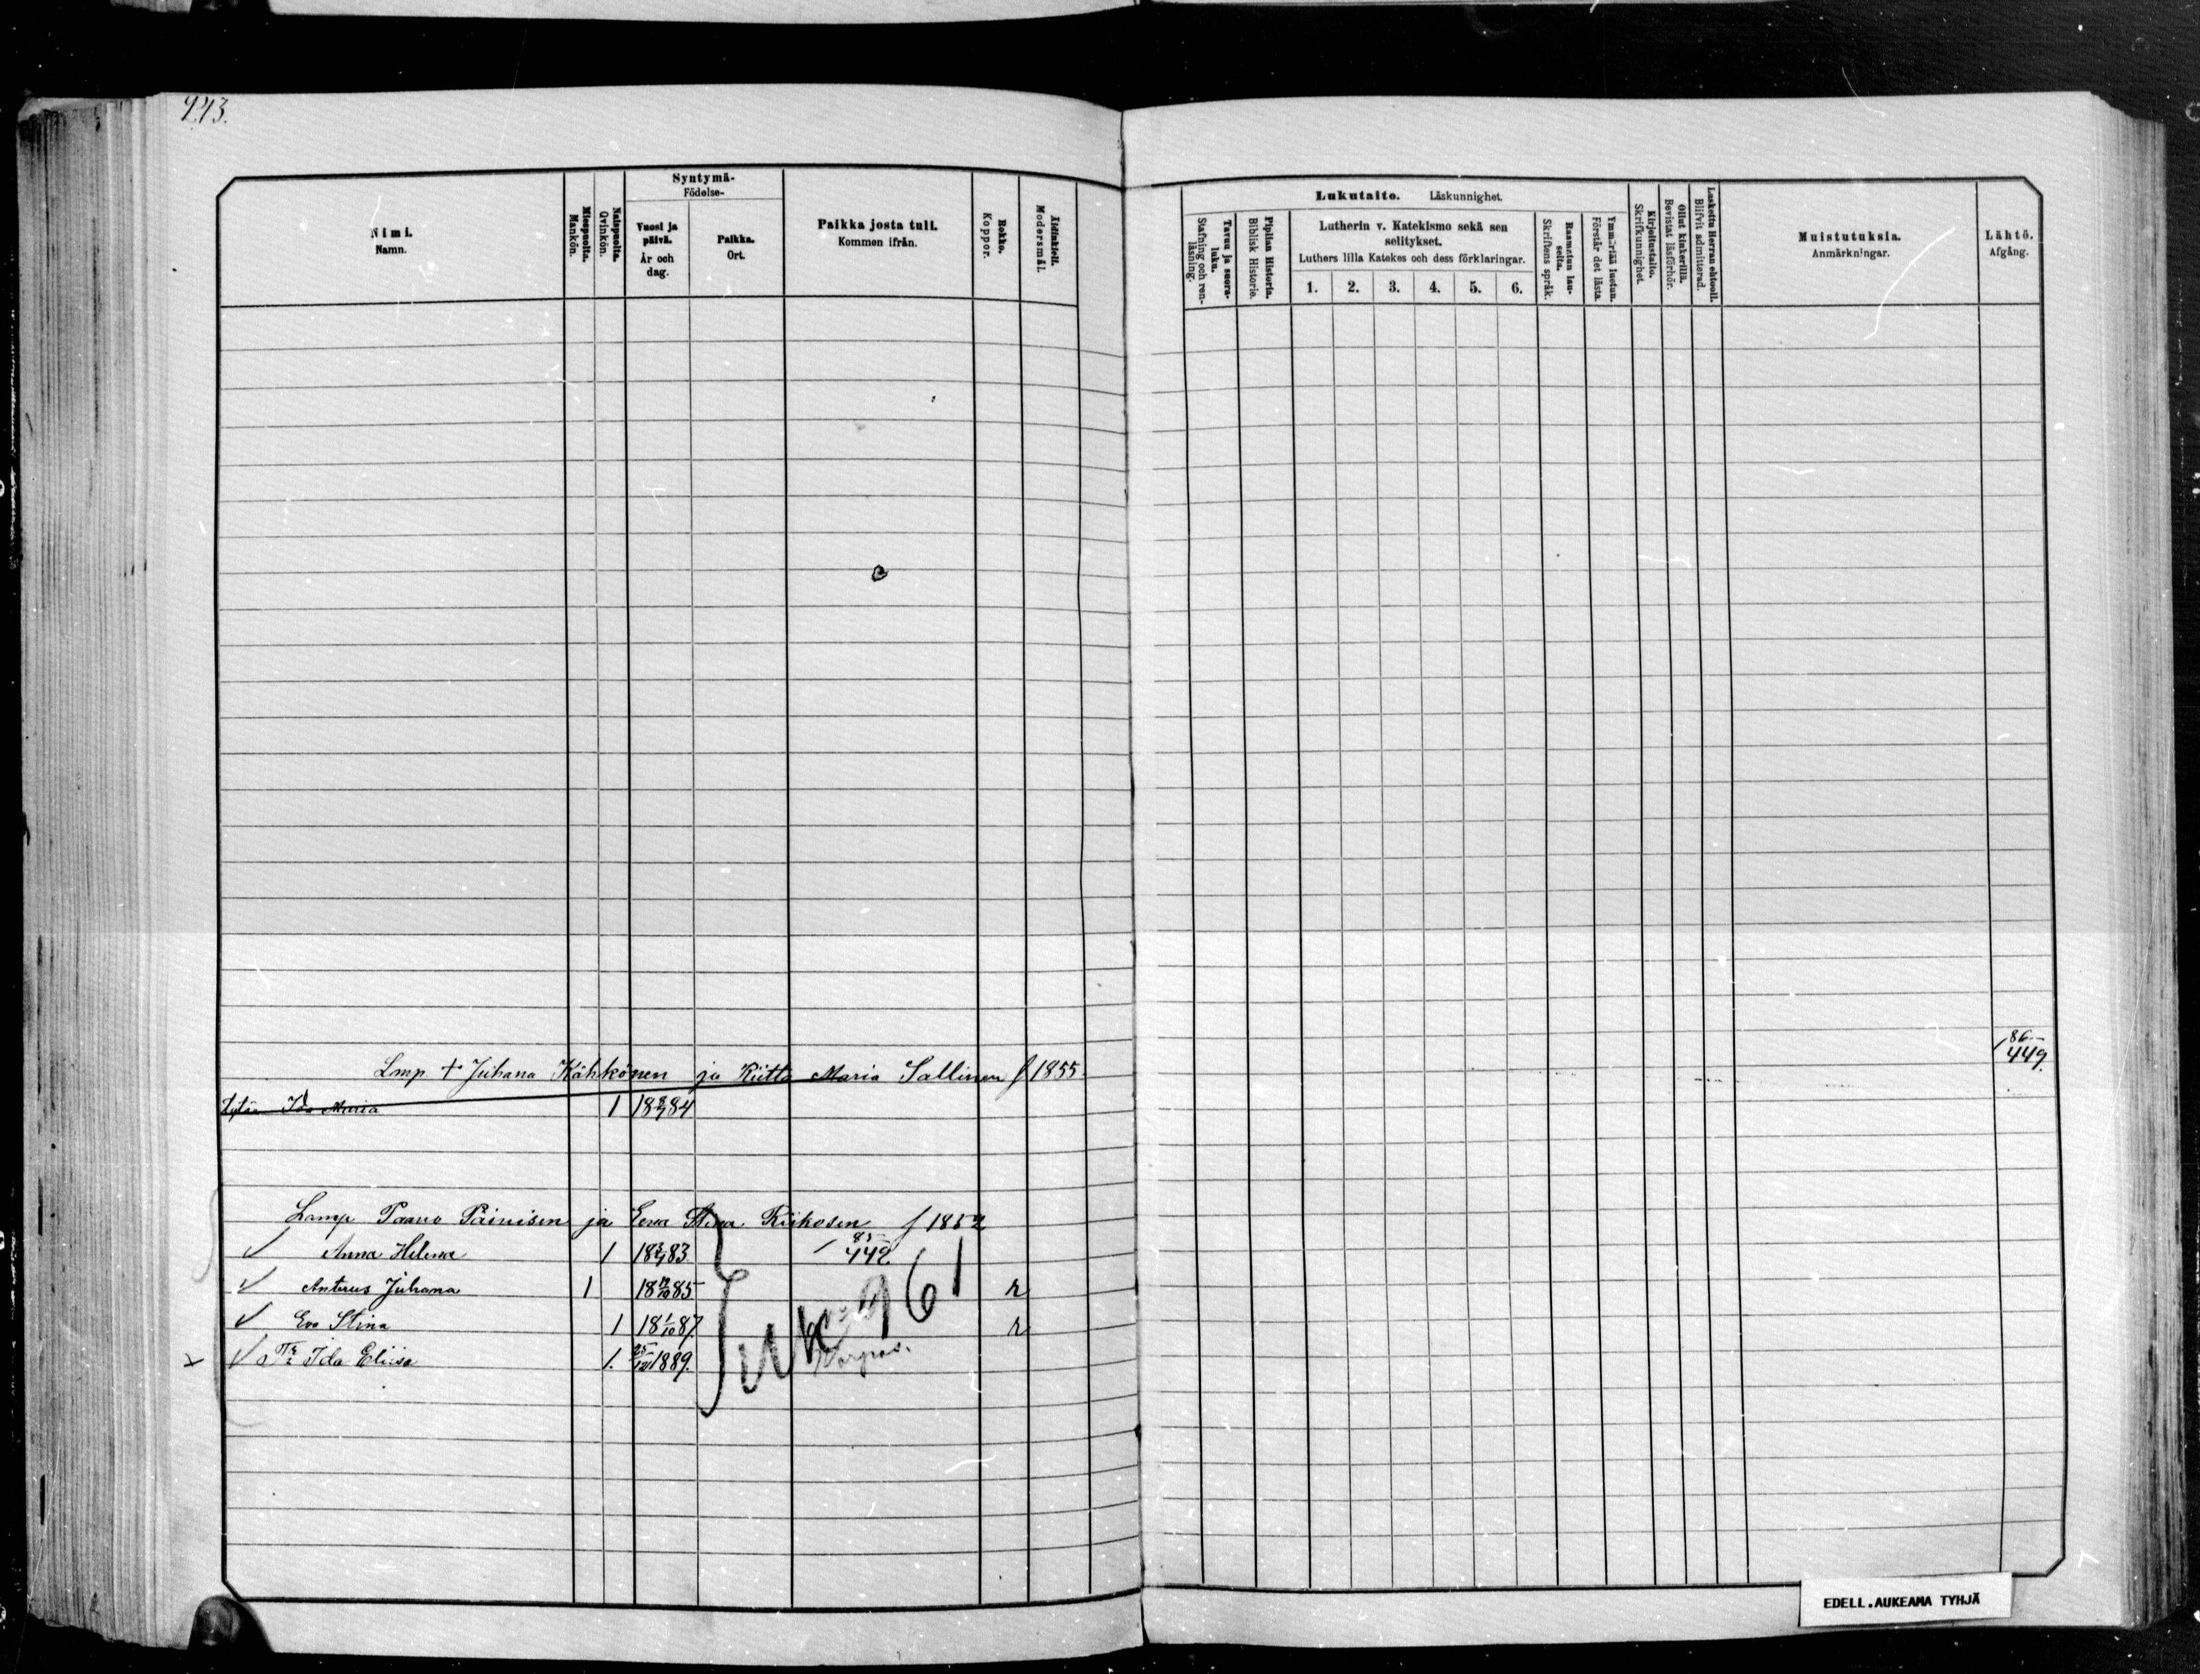 Syntymä-
Födelse-
Nimi.
Namn.
Miespuolta.
Mankön.
Naispuolta.
Qvinkön.
Vuosi ja päivä.
År och dag.
Paikka.
Ort.
Paikka josta tuli.
Kommen ifrån.
Rokko.
Koppor.
Äidinkieli.
Modersmål.
Lukutaito. Läskunnighet.
Tavuu ja suora-luku.
Stafning och ren-läsning.
Piplian Historia.
Biblisk Historie.
Lutherin v. Katekismo sekä sen selitykset.
Luthers lilla Katekes och dess förklaringar.
1. 2. 3. 4. 5. 6.
Raamatun lau-seita.
Skriftens språk.
Ymmärtää luetun.
Förstår det lästa.
Kirjoitustaito.
Skrifkunnighet.
Ollut kinkerillä.
Bevistat läsförhör.
Laskettu Herran ehtooll.
Blifvit admitterad.
Muistutuksia.
Anmärkningar.
Lähtö.
Afgång.
86
449.
Lmp + Juhana Kähkönen ja Riitta Maria Sallinen f 1855.
tytär Ida Maria 1 1884
Lamp Paavo Päivisen ja Eeva Stina Riikosen f 1852
Anna Helena 1 1883 85 442
Anterus Juhana 1 1885 r
Eva Stina 1 18 1/10 87 r
Ida Eliisa 1. 1889.
961
EDELL.AUKEAMA TYHJÄ